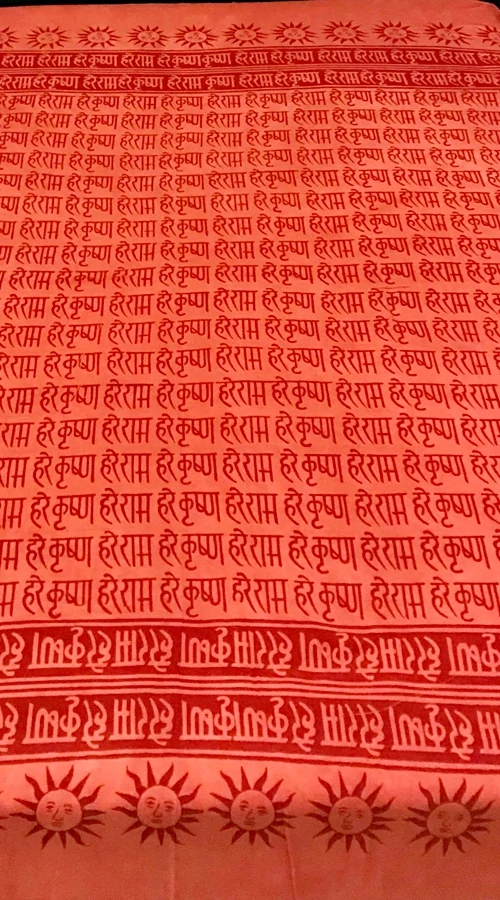 हरेराम हरेकृष्ण हरेराम हरेकृष्ण हरेकृष्ण हरेराम हरेकृष्ण हरेराम हरेकृष्ण हरेराम
हरेराम हरेकृष्ण हरेराम हरेकृष्ण हरेराम हरेकृष्ण हरेराम हरेकृष्ण हरेराम
हरेकृष्ण हरेराम हरेकृष्ण हरेराम हरेकृष्ण हरेराम हरेकृष्ण हरेराम हरेकृष्ण हरेराम
कृष्ण हरेराम हरेकृष्ण हरेराम हरेकृष्ण हरेराम हरेकृष्ण हरेराम हरेकृष्ण हरेराम
कृष्ण हरेराम हरेकृष्ण हरेराम हरेकृष्ण हरेराम हरेकृष्ण हरेराम हरेकृष्ण हरेराम
कृष्ण हरेराम हरेकृष्ण हरेराम हरेकृष्ण हरेराम हरेकृष्ण हरेराम हरेकृष्ण हरेराम
हरेराम हरेकृष्ण हरेराम हरेकृष्ण हरेराम हरेकृष्ण हरेराम हरेकृष्ण हरेराम
हरेराम हरेकृष्ण हरेराम हरेकृष्ण हरेराम हरेकृष्ण हरेराम हरेकृष्ण हरेराम
हरेराम हरेकृष्ण हरेराम हरेकृष्ण हरेराम हरेकृष्ण हरेराम हरेकृष्ण हरेराम
हरेराम हरेकृष्ण हरेराम हरेकृष्ण हरेराम हरेकृष्ण हरेराम हरेकृष्ण हरेराम
हरेराम हरेकृष्ण हरेराम हरेकृष्ण हरेराम हरेकृष्ण हरेराम हरेकृष्ण हरेराम
हरेराम हरेकृष्ण हरेराम हरेकृष्ण हरेराम हरेकृष्ण हरेराम हरेकृष्ण हरेराम
हरेकृष्ण हरेराम हरेकृष्ण हरेराम हरेकृष्ण हरेराम हरेकृष्ण हरेराम
हरेकृष्ण हरेराम हरेकृष्ण हरेराम हरेकृष्ण हरेराम हरेकृष्ण हरेराम
हरेराम हरेकृष्ण हरेराम हरेकृष्ण हरेराम हरेकृष्ण हरेराम हरेकृष्ण हरेराम
हरेकृष्ण हरेराम हरेकृष्ण हरेराम हरेकृष्ण हरेराम हरेकृष्ण
हरेकृष्ण हरेराम हरेकृष्ण हरेराम हरेकृष्ण हरेराम हरेकृष्ण
हरेकृष्ण हरेराम हरेकृष्ण हरेराम हरेकृष्ण हरेराम हरेकृष्ण
हरेकृष्ण हरेराम हरेकृष्ण हरेराम हरेकृष्ण हरेराम हरेकृष्ण
हरेकृष्ण हरेराम हरेकृष्ण हरेराम हरेकृष्ण हरेराम हरेकृष्ण
हरेकृष्ण हरेराम हरेकृष्ण हरेराम हरेकृष्ण
हरेकृष्ण हरेराम हरेकृष्ण हरेराम हरेकृष्ण